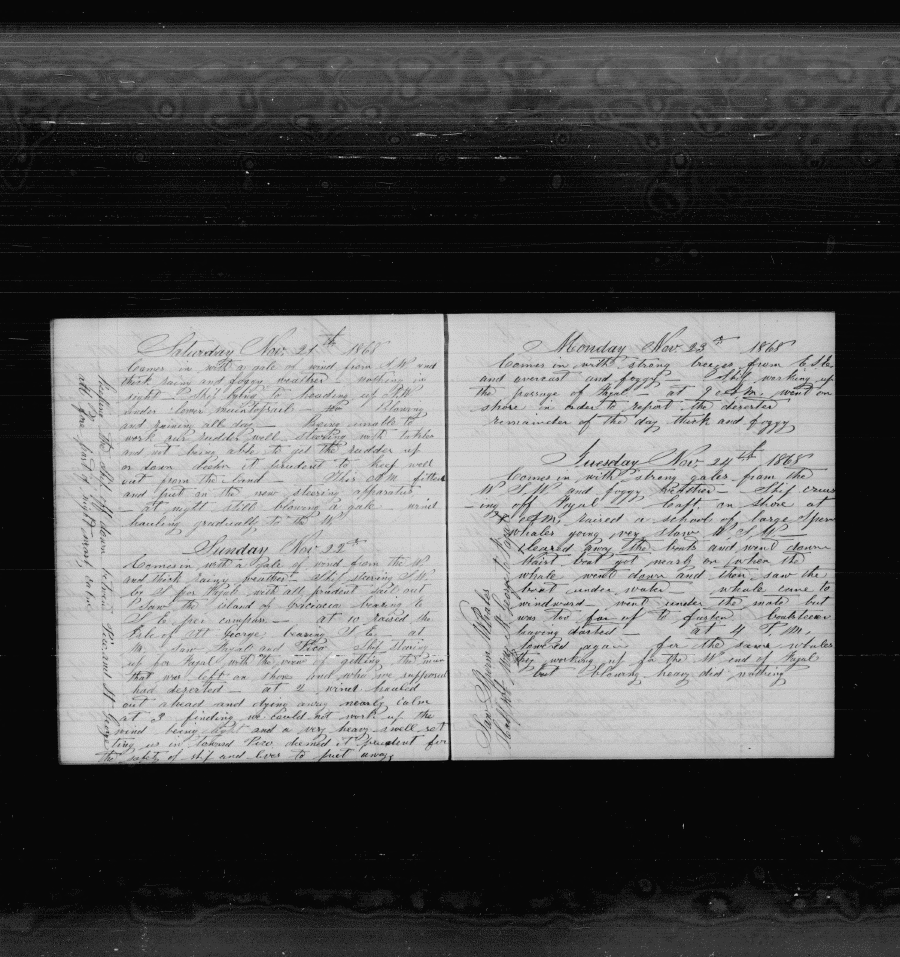 Saturday Nov. 21st 1868
Comes in with a gale of wind from S.W. and
thick rainy and foggy weather nothing in
sight Ship lying to heading up S.W.
under lower maintopsails Blowing
and raining all day Being unable to
work our rudder well steering with tackles
and not being able to get the rudder up
or down deem it prudent to keep well
out from the land This A.M. fitted
and put on the new steering apparatus
at night still blowing a gale wind
hauling gradually to the W.
Sunday Nov 22nd
Comes in with a gale of wind from the W.
and thick rainy weather Ship steering S.W.
by S for Fayal with all prudent sail out
Saw the island of bearing
S.E. per compass at 10 raised the
Isle of St George bearing S.E. at
M. saw Fayal and Pico Ship steering
up for Fayal with the view of getting the men
that was left on shore and who we supposed
had deserted at 2 wind hauled
out ahead and dying away nearly calm
at 3 finding we could not work up the
wind being light and a very heavy swell set
ting us in toward Pico deemed it prudent for
the safety of ship and lives to put away
before the and off down between Pico and St George
all first of night
Monday Nov 23rd 1868
Comes in with strong breezes from E.S.E.
and overcast and foggy Ship working up
the passage of Fayal at 9 A.M. went on
shore in order to report the deserter
remainder of the day thick and foggy
Tuesday Nov. 24th 1868
Comes in with strong gales from the
W.S.W. and foggy weather Ship cruis
ing off Fayal Capt. on shore at
A.M. raised a school of large Sperm
whales going very slow W.S.W.
Cleared away the boats and went down
Waist boat got mark on when the
whale went down and then saw the
boat under water whale came to
windward went under the mate but
was too far up to fasten boatsteerer
having darted at 4 P.M.
lowered again for the same whales
they working up for the W end of Fayal
but blowing heavy did nothing
Saw Sperm Whales